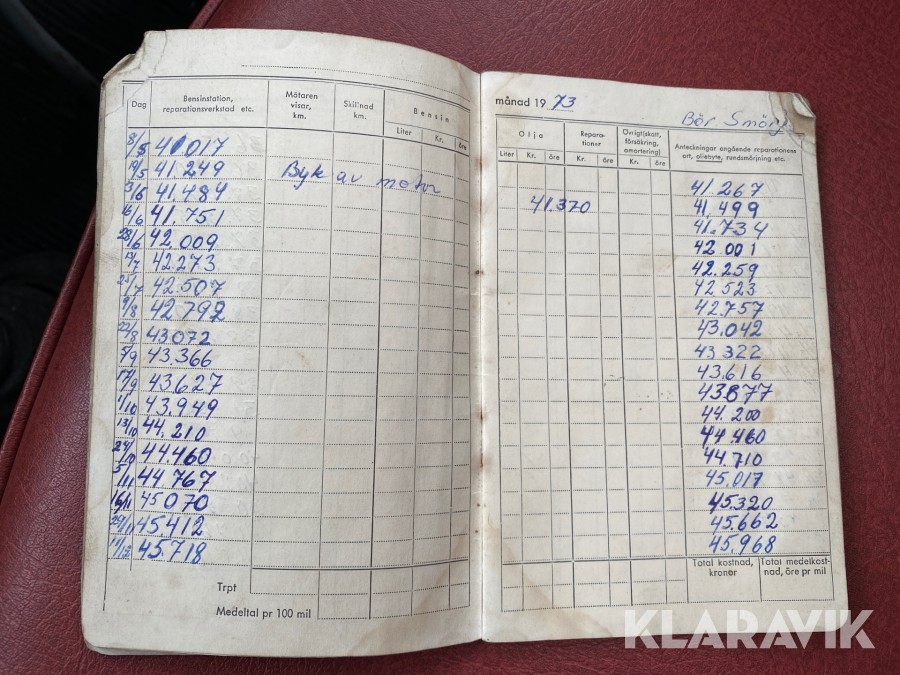 månad 19 73
Bör Smörj
Dag
Bensinstation, reparationsverkstad etc.
Mätaren visar, km.
Skillnad km.
Bensin
Liter Kr. öre
Olja
Liter Kr. öre
Reparationer
Kr. öre
Övrigt(skatt, försäkring, amortering)
Kr. öre
Anteckningar angående reparationens art, oljebyte, rundsmörjning etc.
8/5 41017
19/5 41.249 41.267
3/6 41.484 Byte av motor 41.370 41.499
16/6 41.751 41.734
28/6 42.009 42.001
13/7 42.273 42.259
25/7 42.507 42.523
9/8 42.792 42.757
22/8 43072 43.042
5/9 43.366 43.322
17/9 43.627 43.616
1/10 43.949 43.877
13/10 44.210 44.200
24/10 44.460 44.460
5/11 44.767 44.710
16/11 45070 45.017
29/11 45412 45.320
11/12 45.718 45.662
45.968
Trpt
Medeltal pr 100 mil
Total kostnad, kronor
Total medelkostnad, öre pr mil
KLARAVIK